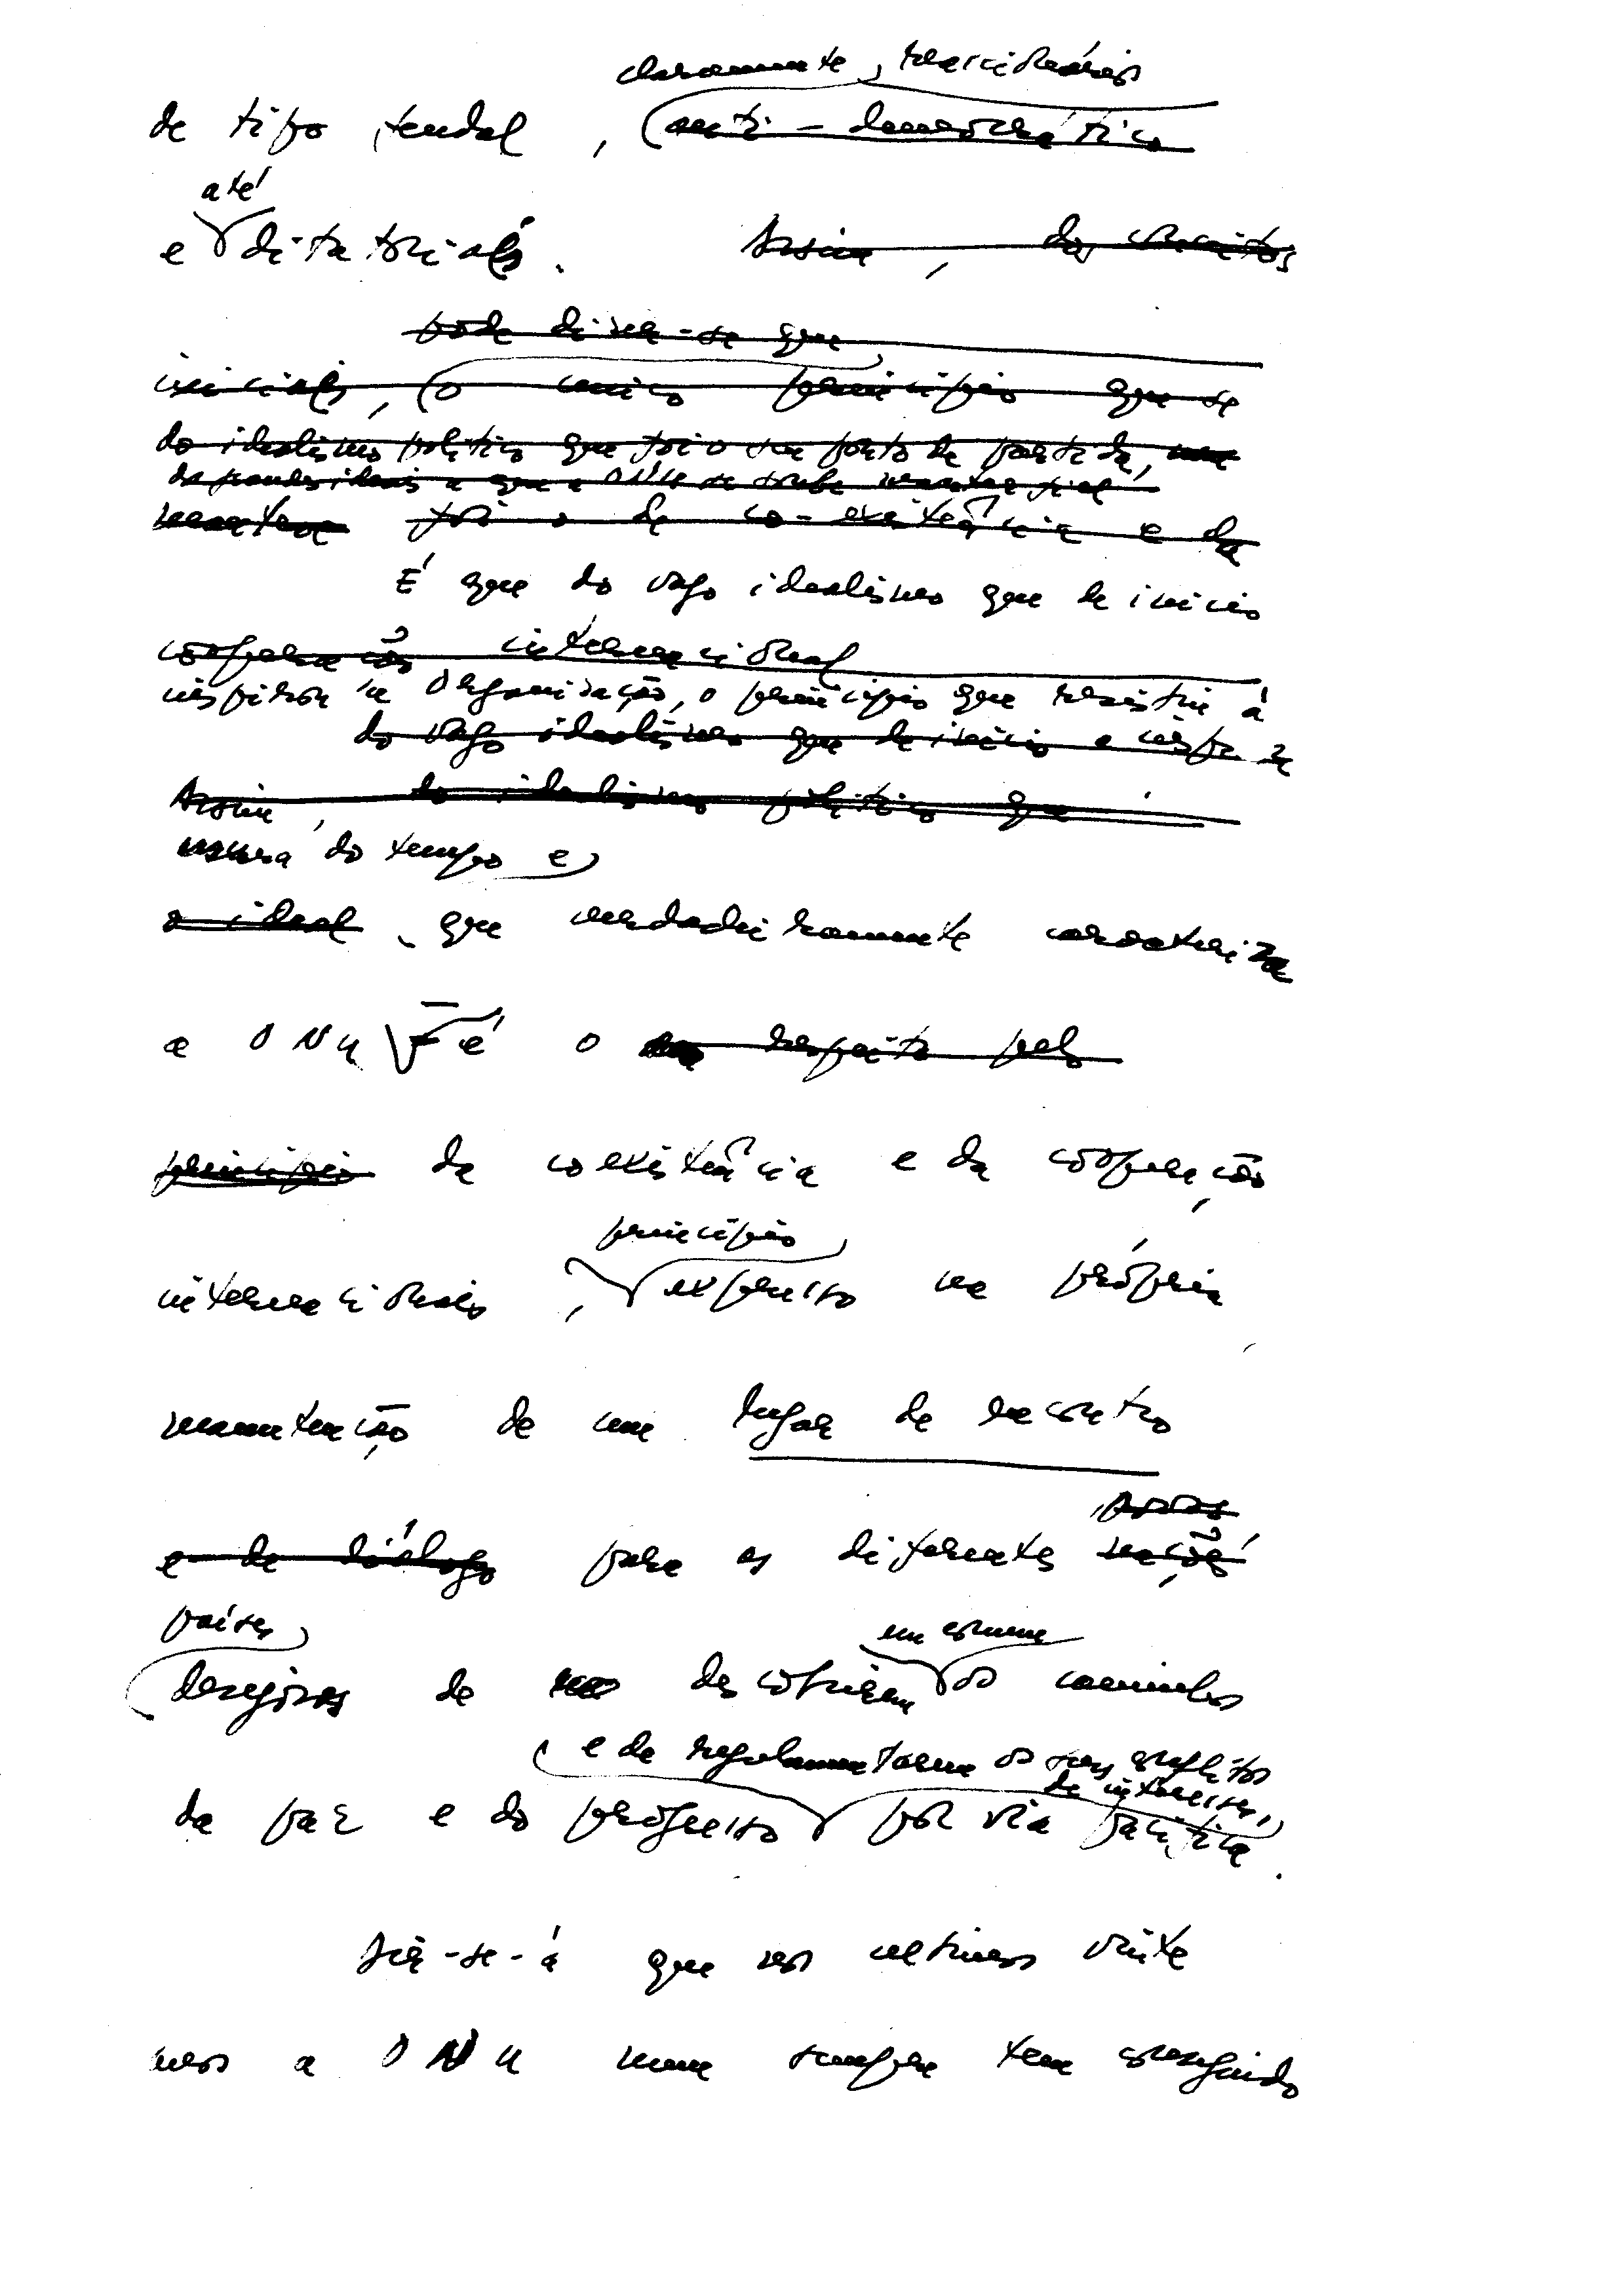 claramente reaccionários
de tipo feudal, anti-democrático
até
e ditatoriais. Assim, dos
pode dizer-se que
iniciais, o único princípio que se
do idealismo político que foi o seu ponto de partida,
manteve foi o da co-existência e da
É que do vago idealismo que de início
cooperação internacional
inspirou a Organização, o princípio que resistiu à
do vago idealismo que de início a inspira
Assim, do idealismo político que
usura do tempo e
o ideal, que verdadeiramente caracteriza
a ONU é o respeito pelo
princípio da coexistência e da cooperação
princípio
internacionais, expresso na própria
manutenção de um lugar de encontro
e de diálogo para os diferentes nações
países
desejosos de descobrirem os caminhos
em comum
e de regulamentarem os seus conflitos
de interesses,
da paz e do progresso por via pacífica.
Dir-se-á que nos últimos vinte
anos a ONU nem sempre tem conseguido